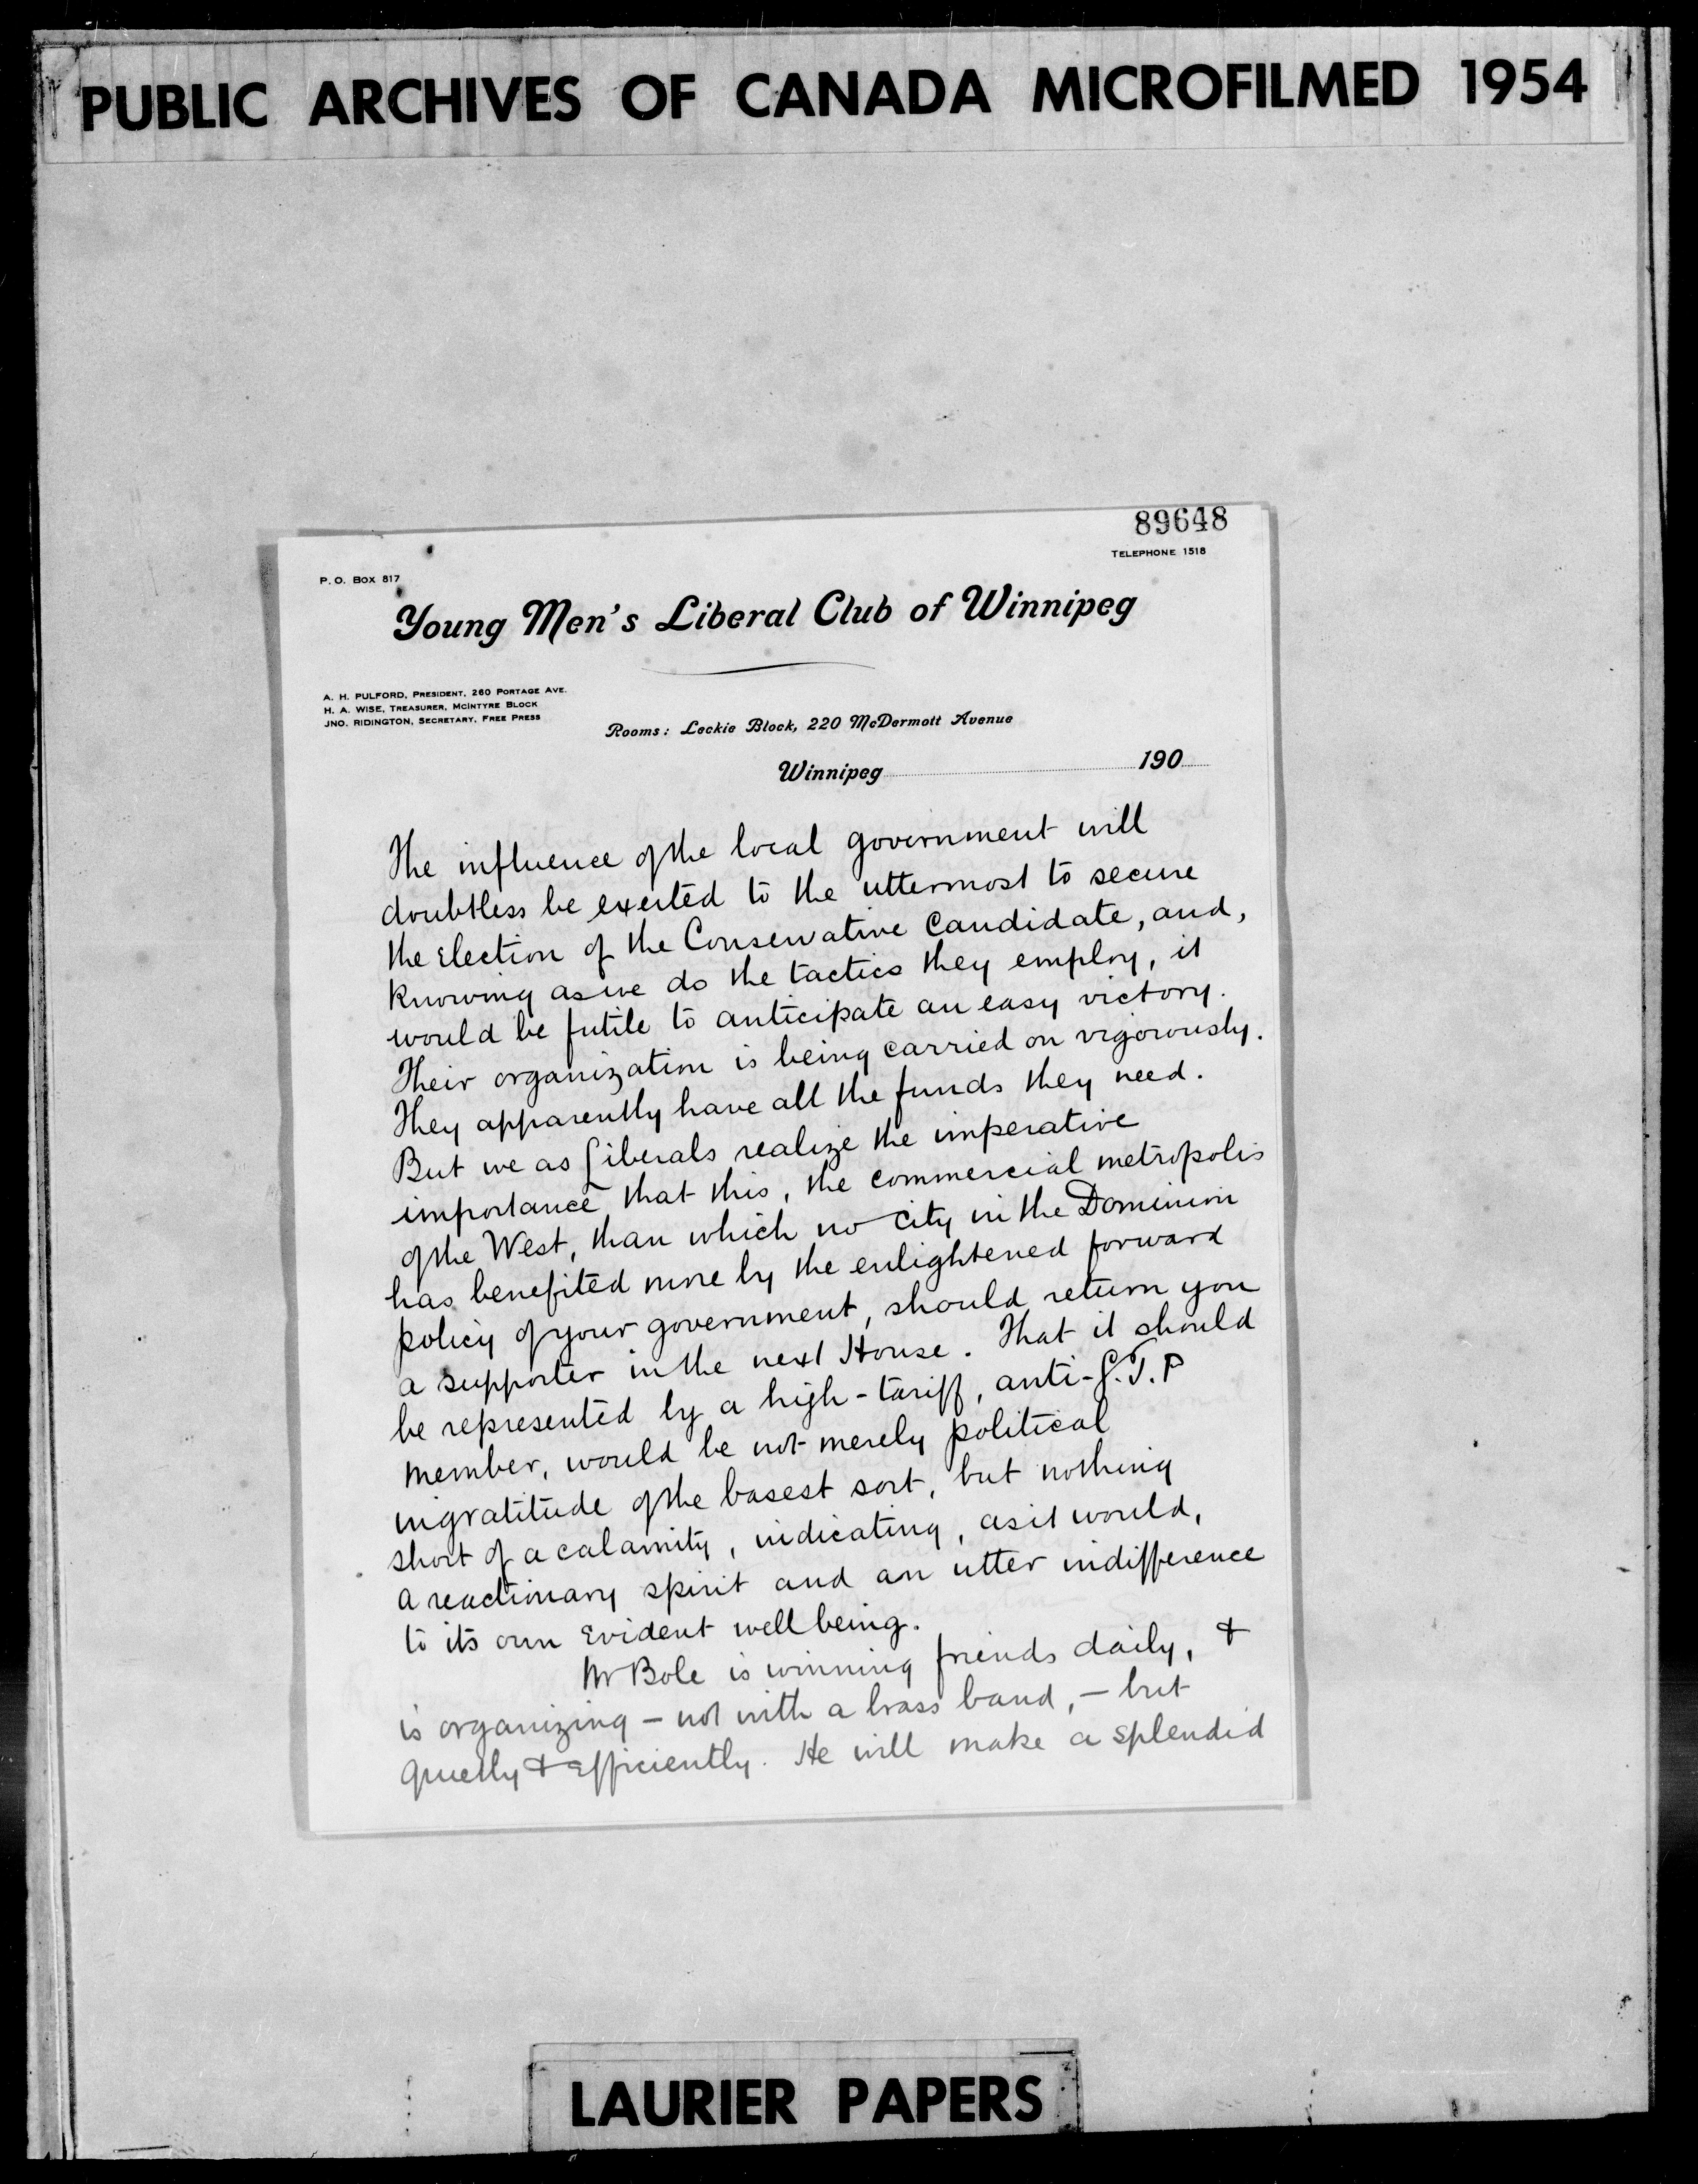 PUBLIC ARCHIVES OF CANADA MICROFILMED 1954
89648
TELEPHONE 1518
P. O. Box 817
Young Men's Liberal Club of Winnipeg
A. H. PULFORD, PRESIDENT, 260 PORTAGE AVE.
H. A. WISE, TREASURER, MCINTYRE BLOCK
JNO. RIDINGTON, SECRETARY, FREE PRESS
Rooms: Leckie Block, 220 McDermott Avenue
Winnipeg 190
The influence of the local government will
doubtless be exerted to the uttermost to secure
the Election of the Conservative Candidate, and,
knowing as we do the tactics they employ, it
would be futile to anticipate an easy victory.
Their organization is being carried on vigorously.
They apparently have all the funds they need.
But we as Liberals realize the imperative
importance that this, the commercial metropolis
of the West, than which no city in the Dominion
has benefited more by the enlightened forward
policy of your government, should return you
a supporter in the next House. That it should
be represented by a high-tariff, anti-G.T.P
member, would be not merely political
ingratitude of the basest sort, but nothing
short of a calamity, indicating, as it would,
a reactionary spirit and an utter indifference
to its own Evident well being.
Mr Bole is winning friends daily, &
is organizing - not with a brass band, - but
quietly & Efficiently. He will make a splendid
LAURIER PAPERS